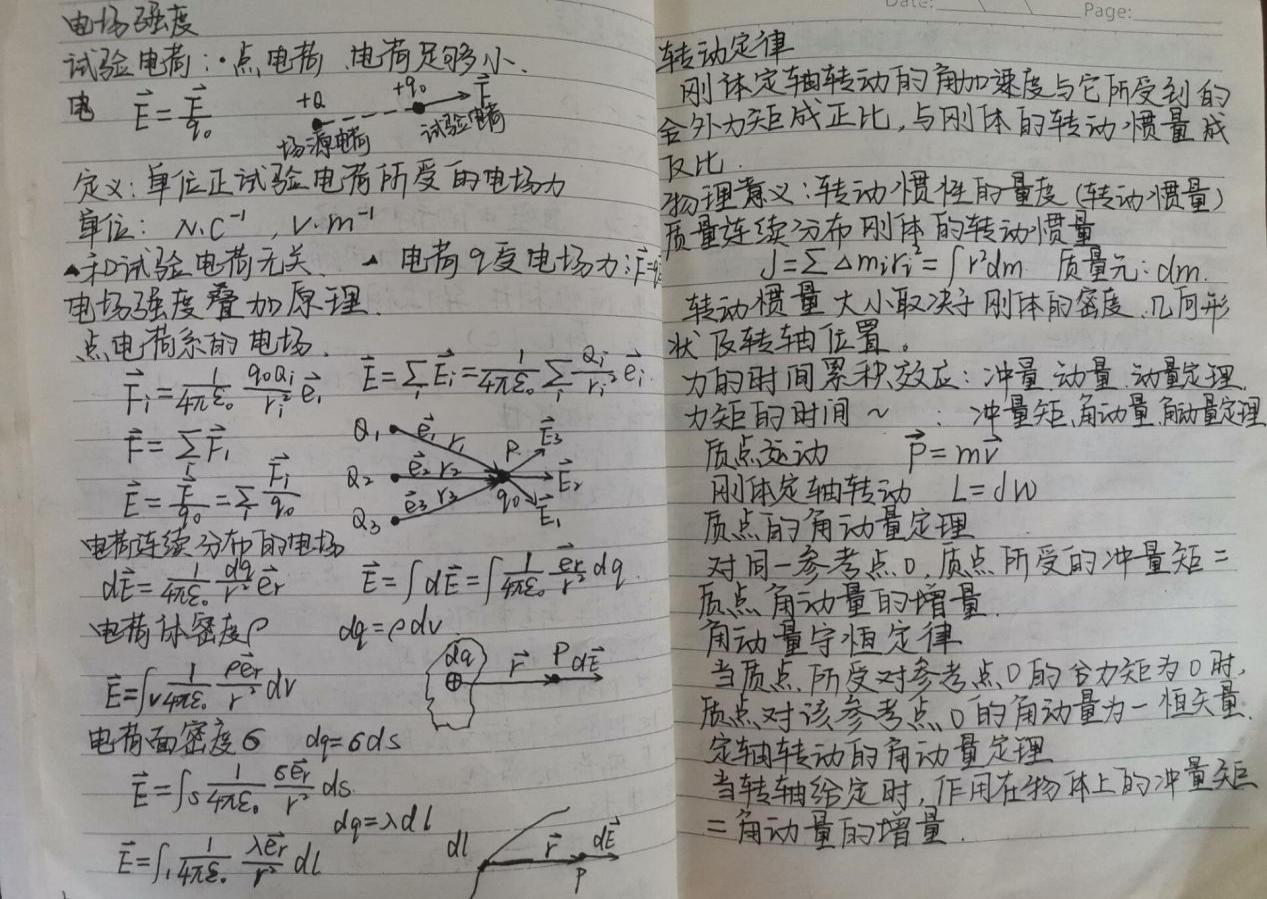 电场强度
试验电荷:·点电荷、电荷足够小.
电 E⃗ = F⃗/q₀ +Q +q₀ F⃗
场源电荷 试验电荷
定义:单位正试验电荷所受的电场力
单位: N·C⁻¹ , V·m⁻¹
▲和试验电荷无关、 ▲ 电荷q受电场力:F⃗=q
电场强度叠加原理.
点电荷系的电场.
F⃗ᵢ = 1/4πε₀ q₀Qᵢ/rᵢ² e⃗ᵢ E⃗ = ∑ᵢ E⃗ᵢ = 1/4πε₀ ∑ᵢ Qᵢ/rᵢ² e⃗ᵢ.
F⃗ = ∑ᵢ F⃗ᵢ
E⃗ = F⃗/q₀ = ∑ᵢ F⃗ᵢ/q₀
Q₁ e⃗₁ r₁ P. E⃗₃
Q₂ e⃗₂ r₂ E⃗₂
Q₃ e⃗₃ r₃ q₀ E⃗₁
电荷连续分布的电场
dE⃗ = 1/4πε₀ dq/r² e⃗r E⃗ = ∫dE⃗ = ∫ 1/4πε₀ e⃗r/r² dq.
电荷体密度ρ dq=ρdv
E⃗ = ∫v 1/4πε₀ ρe⃗r/r² dv dq r⃗ P dE⃗
电荷面密度σ dq=σds
E⃗ = ∫s 1/4πε₀ σe⃗r/r² ds.
dq=λdl
E⃗ = ∫l 1/4πε₀ λe⃗r/r² dl dl r⃗ dE⃗
P
Date: Page:
转动定律
刚体定轴转动的角加速度与它所受到的
合外力矩成正比,与刚体的转动惯量成
反比.
物理意义:转动惯性的量度(转动惯量)
质量连续分布刚体的转动惯量
J=∑Δmᵢrᵢ²=∫r²dm 质量元:dm.
转动惯量大小取决于刚体的密度、几何形
状及转轴位置。
力的时间累积效应:冲量、动量、动量定理.
力矩的时间~ : 冲量矩、角动量、角动量定理
质点运动 P⃗=mv⃗
刚体定轴转动 L=Jω
质点的角动量定理
对同一参考点O,质点所受的冲量矩=
质点角动量的增量.
角动量守恒定律
当质点所受对参考点O的合力矩为0时,
质点对该参考点O的角动量为一恒矢量.
定轴转动的角动量定理
当转轴给定时,作用在物体上的冲量矩
=角动量的增量.